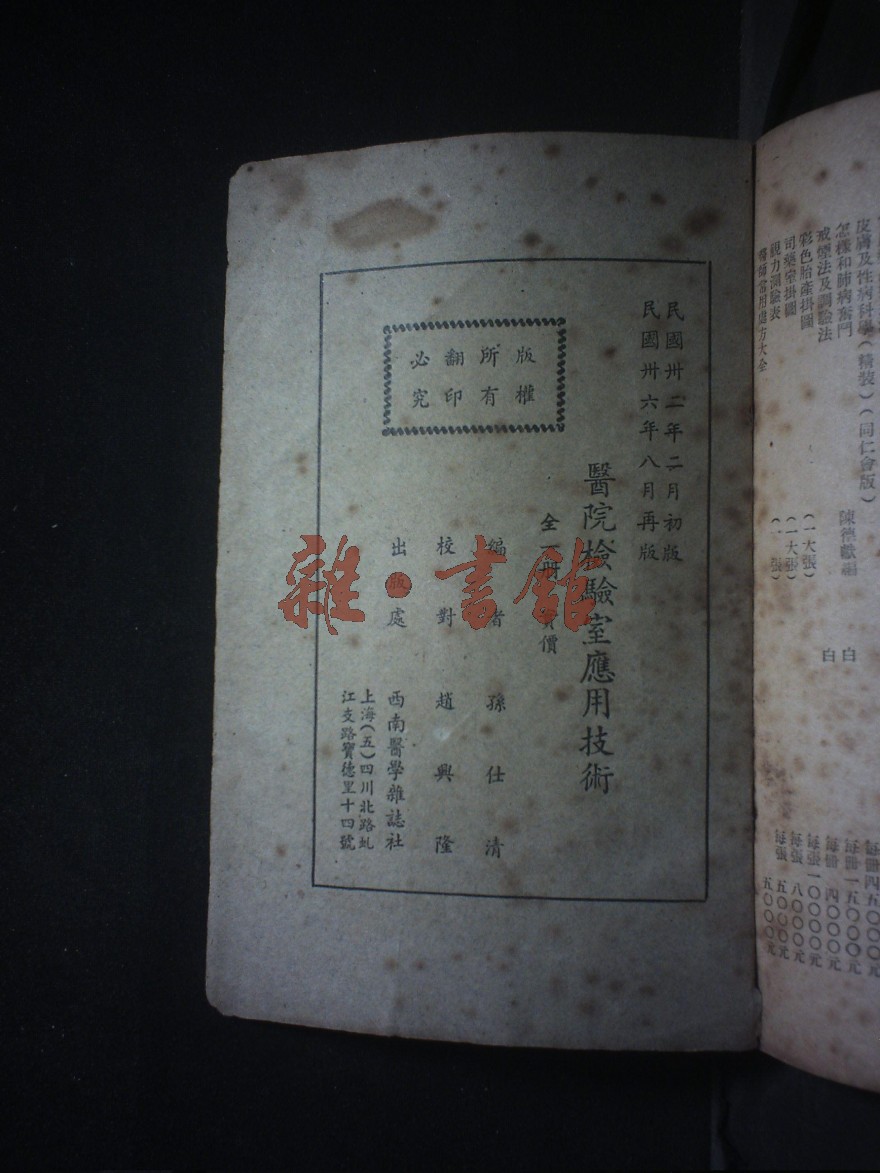 皮膚及性病科學(精裝)(同仁會版)
每冊四五〇〇〇元
怎樣和肺病奮鬥
白
每冊一五〇〇〇元
戒煙法及調驗法
白
每冊四〇〇〇元
彩色胎產掛圖
(一大張)
每張一〇〇〇〇元
司藥室掛圖
(一大張)
每張八〇〇〇元
視力測驗表
(一張)
每張五〇〇〇元
醫師常用處方大全
五〇〇〇〇元
民國卅二年二月初版
民國卅六年八月再版
醫院檢驗室應用技術
全一冊
價
編者 孫仕清
校對 趙興隆
出版處 西南醫學雜誌社
上海(五)四川北路虬
江支路寶德里十四號
版權
所有
翻印
必究
雜·書館